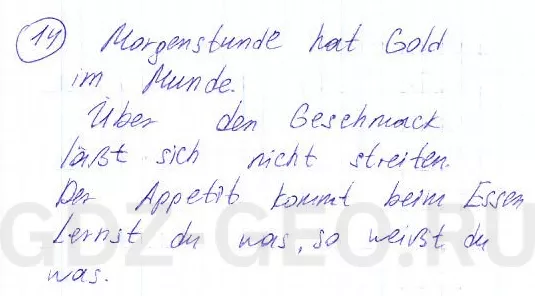 14 Morgenstunde hat Gold
im Munde.
Über den Geschmack
läßt sich nicht streiten.
Der Appetit kommt beim Essen
Lernst du was, so weißt du
was.
GDZ-GEO.RU